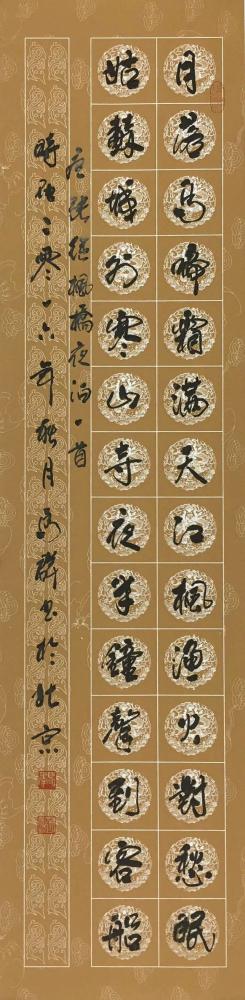 月落乌啼霜满天江枫渔火對愁眠
姑蘇城外寒山寺夜半鐘聲到客船
唐張繼楓橋夜泊一首
時在二零一六年秋月
書於北京